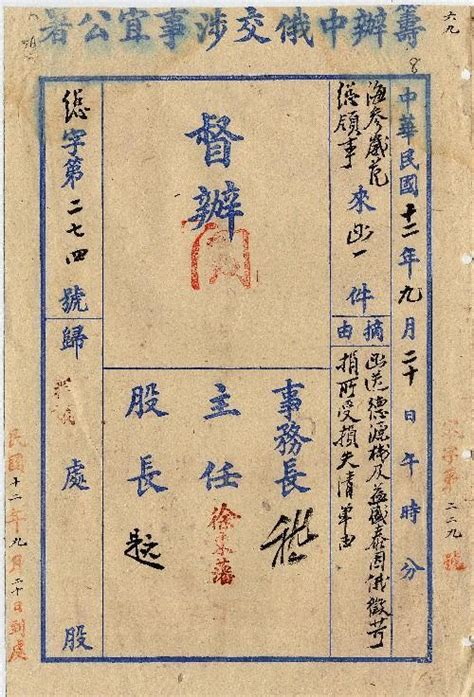 籌辦中俄交涉事宜公署
六九
8
中華民國十二年九月二十日午時分
海參崴范
總領事
來函一件
摘由
函送德源棧及益盛泰因俄徵苛
捐所受損失清單由
督辦
閱
事務長
主任
徐
藩
股長
總字第二七四號歸
處
股
字第二二九號
民國十二年九月二十日到處